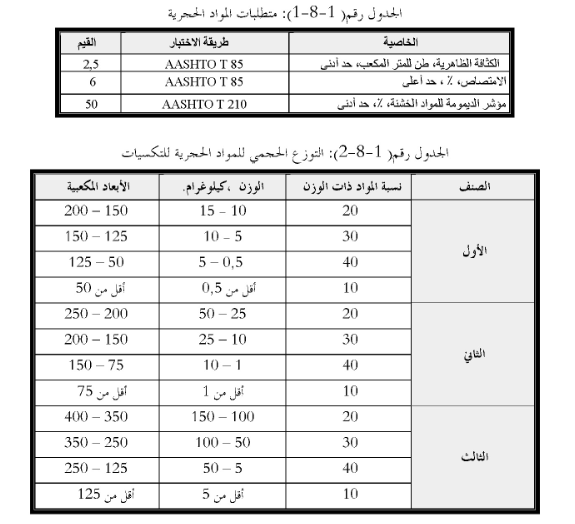 الجدول رقم( 1-8-1): متطلبات المواد الحجرية
الخاصية طريقة الاختبار القيم
الكثافة الظاهرية، طن للمتر المكعب، حد أدنى AASHTO T 85 2,5
الامتصاص، ٪ ، حد أعلى AASHTO T 85 6
مؤشر الديمومة للمواد الخشنة، ٪، حد أدنى AASHTO T 210 50
الجدول رقم( 1-8-2): التوزع الحجمي للمواد الحجرية للتكسيات
الصنف نسبة المواد ذات الوزن الوزن ،كيلوغرام. الأبعاد المكعبية
الأول
20 10 – 15 150 – 200
30 5 – 10 125 – 150
40 0,5 – 5 50 – 125
10 أقل من 0,5 أقل من 50
الثاني
20 25 – 50 200 – 250
30 10 – 25 150 – 200
40 1 – 10 75 – 150
10 أقل من 1 أقل من 75
الثالث
20 100 – 150 350 – 400
30 50 – 100 250 – 350
40 5 – 50 125 – 250
10 أقل من 5 أقل من 125